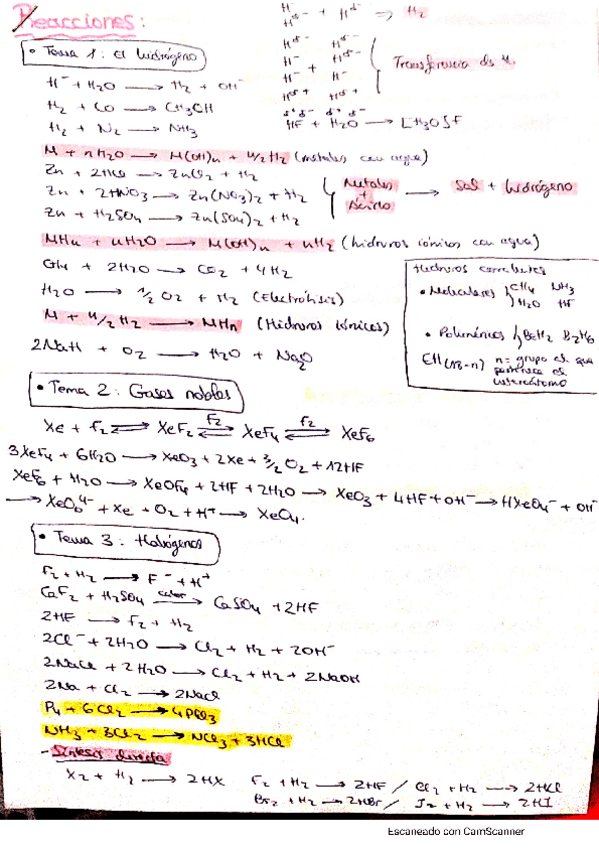 Reacciones:
H⁻ᵟ⁻ + Hᵟ⁻ ⇒ H₂
• Tema 1: El hidrógeno
Transferencia de
H⁻ + H₂O ⟶ H₂ + OH⁻
H₂ + CO ⟶ CH₃OH
H₂ + N₂ ⟶ NH₃
HF + H₂O ⟶ [H₃O]F
M + nH₂O ⟶ M(OH)n + n/2 H₂ (metales con agua)
Zn + 2HCl ⟶ ZnCl₂ + H₂
Zn + 2HNO₃ ⟶ Zn(NO₃)₂ + H₂
Zn + H₂SO₄ ⟶ Zn(SO₄)₂ + H₂
Metales + Ácido ⟶ Sal + hidrógeno
MHn + nH₂O ⟶ M(OH)n + nH₂ (hidruros iónicos con agua)
CH₄ + 2H₂O ⟶ CO₂ + 4H₂
H₂O ⟶ 1/2 O₂ + H₂ (Electrólisis)
M + n/2 H₂ ⟶ MHn (Hidruros iónicos)
2NaH + O₂ ⟶ H₂O + Na₂O
Hidruros covalentes
• Moleculares CH₄ NH₃
H₂O HF
• Poliméricos BeH₂ B₂H₆
EH(18-n) n = grupo al que
pertenece el
heteroátomo
• Tema 2: Gases nobles
Xe + F₂ ⇌ XeF₂ ⇌ F₂ XeF₄ ⇌ F₂ XeF₆
3XeF₄ + 6H₂O ⟶ XeO₃ + 2Xe + 3/2 O₂ + 12HF
XeF₆ + H₂O ⟶ XeOF₄ + 2HF + 2H₂O ⟶ XeO₃ + 4HF + OH⁻ ⟶ HXeO₄⁻ + OH⁻
⟶ XeO₆⁴⁻ + Xe + O₂ + H⁺ ⟶ XeO₄.
• Tema 3: Halógenos
F₂ + H₂ ⟶ F⁻ + H⁺
CaF₂ + H₂SO₄ calor ⟶ CaSO₄ + 2HF
2HF ⟶ F₂ + H₂
2Cl⁻ + 2H₂O ⟶ Cl₂ + H₂ + 2OH⁻
2NaCl + 2H₂O ⟶ Cl₂ + H₂ + 2NaOH
2Na + Cl₂ ⟶ 2NaCl
P₄ + 6Cl₂ ⟶ 4PCl₃
NH₃ + 3Cl₂ ⟶ NCl₃ + 3HCl
- Síntesis directa
X₂ + H₂ ⟶ 2HX F₂ + H₂ ⟶ 2HF / Cl₂ + H₂ ⟶ 2HCl
Br₂ + H₂ ⟶ 2HBr / I₂ + H₂ ⟶ 2HI
Escaneado con CamScanner